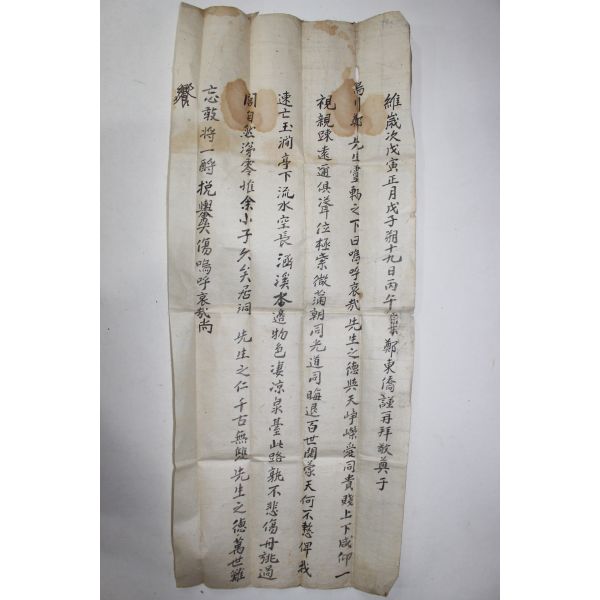 維歲次戊寅正月戊子朔十九日丙午 鄭東僑謹再拜敬奠于
烏川鄭先生靈 之下曰嗚呼哀哉先生之德與天崢嶸愛同貴賤上下咸仰一
視親踈遠邇俱 位極紫微蒲朝同光道同晦退百世開蒙天何不憗俾我
速亡玉澗亭下流水空長涵溪 邊物色凄凉泉臺此路孰不悲傷毋 過
閭自然涕零惟余小子久矣居洞 先生之仁千古無雙先生之德萬世難
忘敢將一酹 傷嗚呼哀哉尚
饗